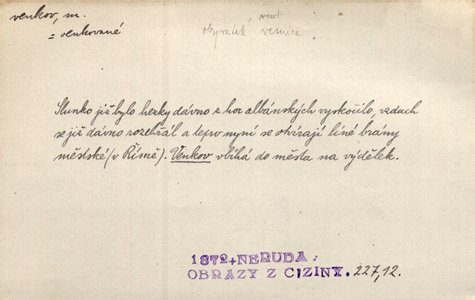 venkov, m.
= venkované
obyvatelé venk. vesnice
Slunko již bylo hezky dávno z hor albánských vyskočilo, vzduch
se již dávno rozehřál a teprv nyní se otvírají líné brány
městské (v Římě). Venkov vbíhá do města na výdělek.
1872 + NERUDA:
OBRAZY Z CIZINY. 227,12.